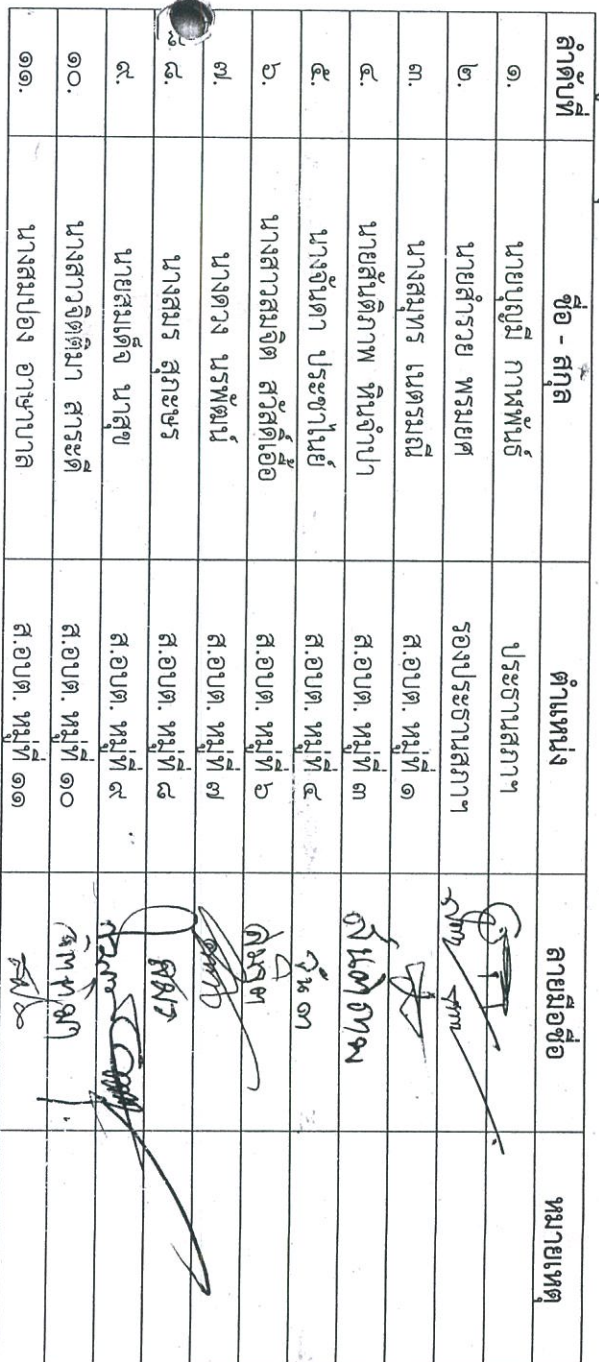 ลำดับที่ ชื่อ - สกุล ตำแหน่ง ลายมือชื่อ หมายเหตุ
๑. นายบุญมี กาฬพันธ์ ประธานสภาฯ
๒. นายสำรวย พรมยศ รองประธานสภาฯ
๓. นางสมุทร เนตรมณี ส.อบต. หมู่ที่ ๑
๔. นายสันติภาพ หินจำปา ส.อบต. หมู่ที่ ๓ สันติภาพ
๕. นางจันดา ประชาไนย์ ส.อบต. หมู่ที่ ๔ จันดา
๖. นางสาวสมจิต สวัสดิ์เอื้อ ส.อบต. หมู่ที่ ๖ สมจิต
๗. นางดวง นรพัฒน์ ส.อบต. หมู่ที่ ๗
๘. นางสมร สุภะษร ส.อบต. หมู่ที่ ๘ สมร
๙. นายสมเด็จ นาสุข ส.อบต. หมู่ที่ ๙
๑๐. นางสาวจิตติมา สาระดี ส.อบต. หมู่ที่ ๑๐
๑๑. นางสมปอง อาษานาค ส.อบต. หมู่ที่ ๑๑